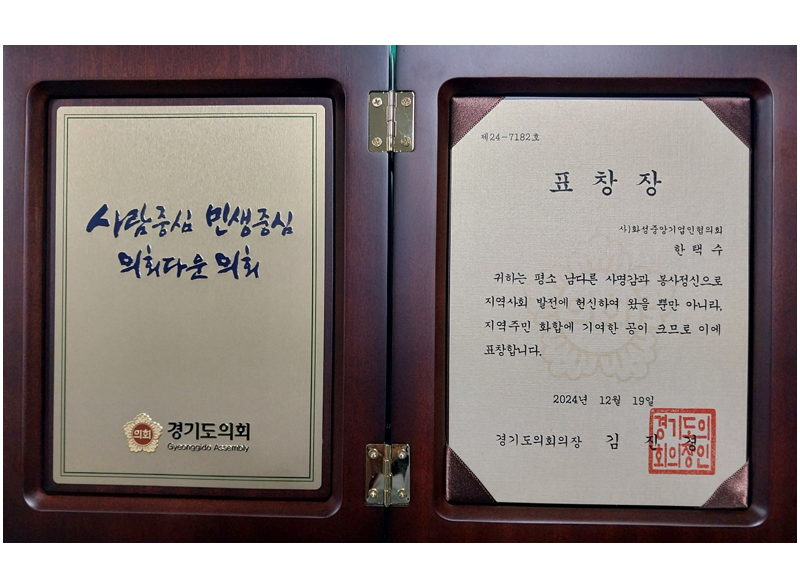 사람중심 민생중심
의회다운 의회
의회
경기도의회
Gyeonggido Assembly
제24-7182호
표 창 장
사)화성중앙기업인협의회
한 택 수
귀하는 평소 남다른 사명감과 봉사정신으로
지역사회 발전에 헌신하여 왔을 뿐만 아니라,
지역주민 화합에 기여한 공이 크므로 이에
표창합니다.
2024년 12월 19일
경기도의회의장 김 진 경
경기도의
회의장인